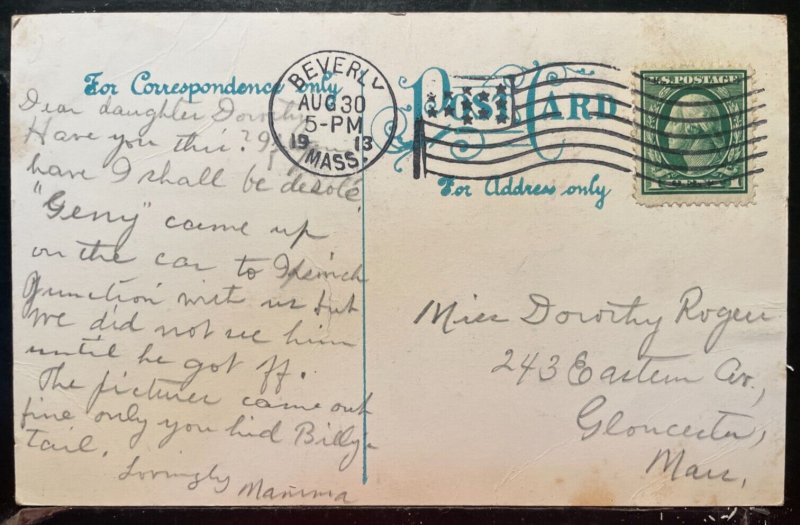 For Correspondence only
POST CARD
For Address only
BEVERLY
AUG 30
5-PM
1913
MASS.
U.S. POSTAGE
1
1
Dear daughter Dorothy
Have you this? If you
have I shall be desolé
"Gerry" came up
on the car to Ipswich
Junction with us but
we did not see him
until he got off.
The pictures came out
fine only you hid Billy's
tail.
Lovingly
Mamma
Miss Dorothy Rogers
243 Eastern Av.,
Gloucester,
Mass.